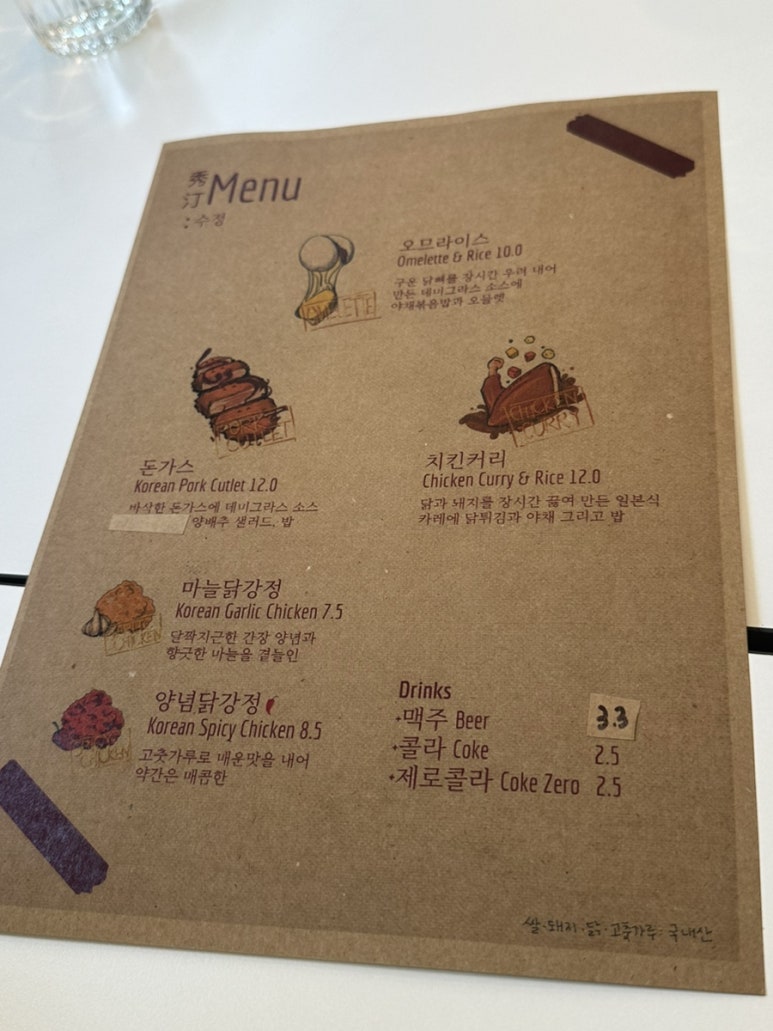 秀汀 Menu
:수정
오므라이스
Omelette & Rice 10.0
구운 닭뼈를 장시간 우려 내어
만든 데미그라스 소스에
야채볶음밥과 오믈렛
OMELETTE
PORK
CUTLET
돈가스
Korean Pork Cutlet 12.0
바삭한 돈가스에 데미그라스 소스
양배추 샐러드, 밥
CHICKEN
CURRY
치킨커리
Chicken Curry & Rice 12.0
닭과 돼지를 장시간 끓여 만든 일본식
카레에 닭튀김과 야채 그리고 밥
마늘닭강정
Korean Garlic Chicken 7.5
달짝지근한 간장 양념과
향긋한 마늘을 곁들인
CHICKEN
양념닭강정
Korean Spicy Chicken 8.5
고춧가루로 매운맛을 내어
약간은 매콤한
CHICKEN
Drinks
맥주 Beer 3.3
콜라 Coke 2.5
제로콜라 Coke Zero 2.5
쌀·돼지·닭·고춧가루: 국내산